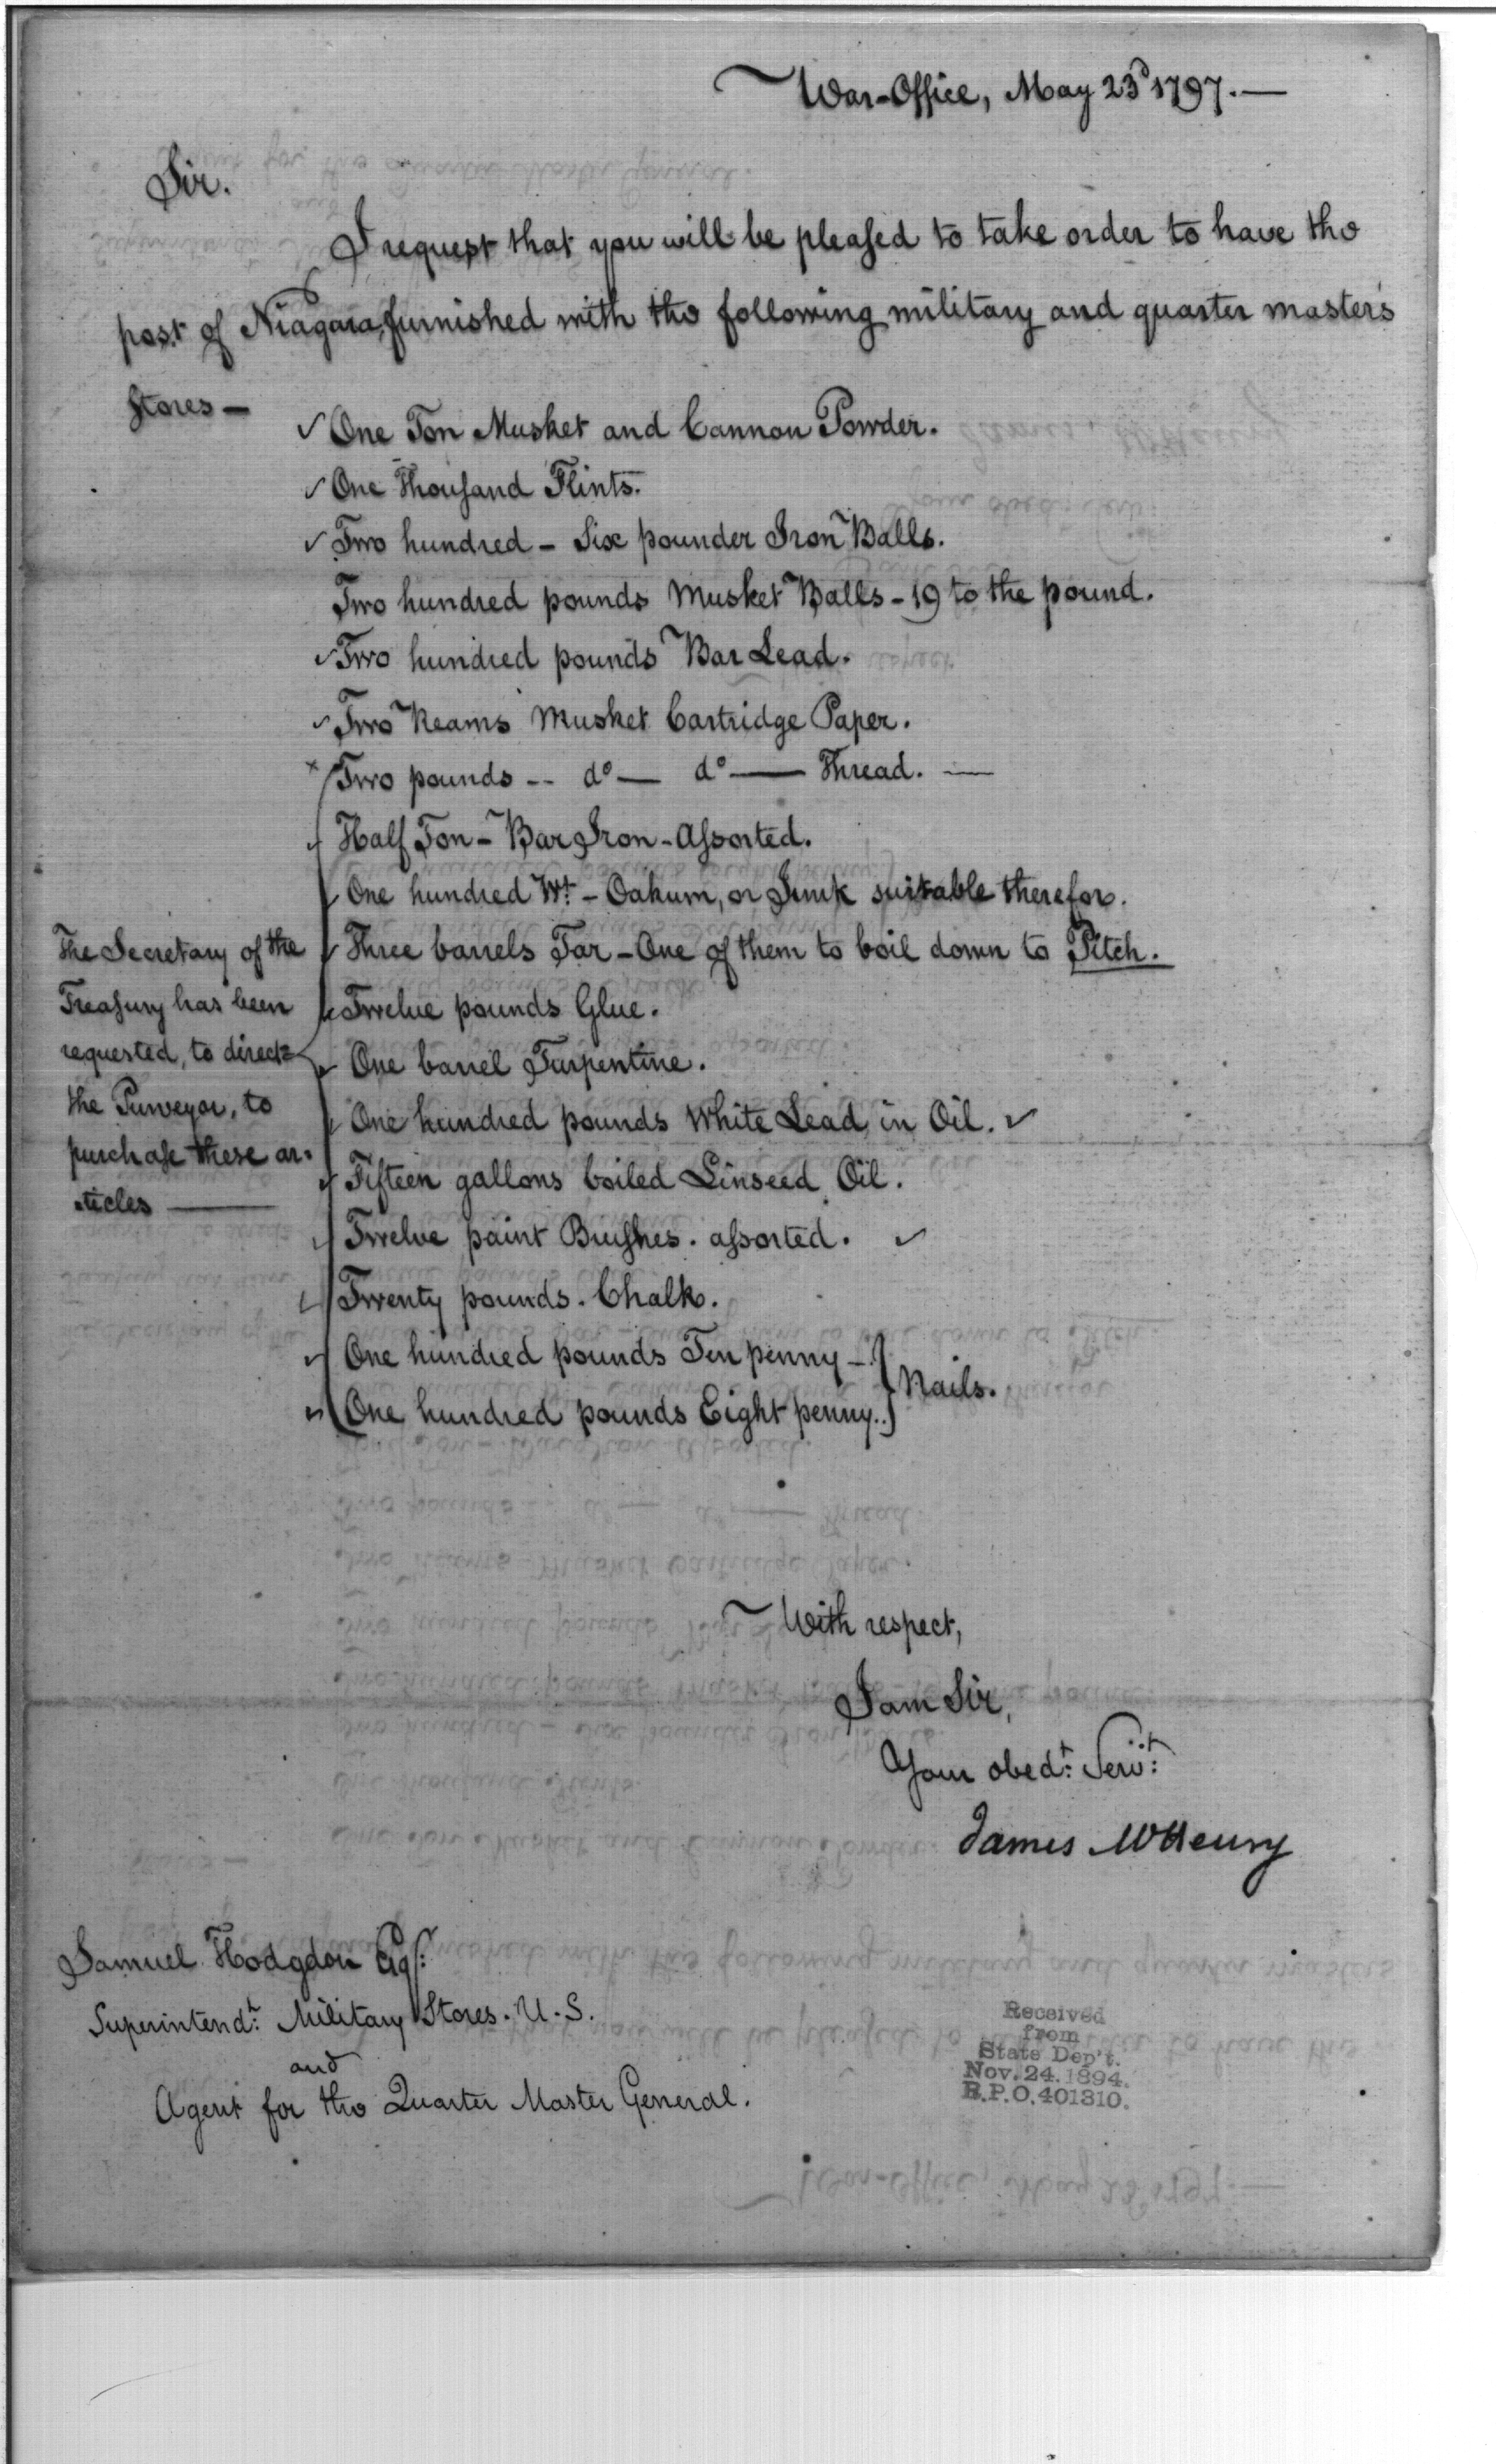 War-Office, May 23d 1797.—
Sir.
I request that you will be pleased to take order to have the
post of Niagara, furnished with the following military and quarter master's
Stores—
✓ One Ton Musket and Cannon Powder.
✓ One Thousand Flints.
✓ Two hundred - Six pounder Iron Balls.
Two hundred pounds Musket Balls - 19 to the pound.
✓ Two hundred pounds Bar Lead.
✓ Two Reams Musket Cartridge Paper.
x Two pounds -- do — do — Thread. —
✓ Half Ton - Bar Iron - Assorted.
✓ One hundred Wt - Oakum, or Junk suitable therefor.
✓ Three barrels Tar - One of them to boil down to Pitch.
✓ Twelve pounds Glue.
✓ One barrel Turpentine.
✓ One hundred pounds White Lead in Oil. ✓
✓ Fifteen gallons boiled Linseed Oil.
✓ Twelve paint Brushes. assorted. ✓
✓ Twenty pounds. Chalk.
✓ One hundred pounds Ten penny -
✓ One hundred pounds Eight penny..
} Nails.
The Secretary of the
Treasury has been
requested, to direct
the Purveyor, to
purchase these ar-
-ticles —
With respect,
I am Sir,
Your obedt: Servt:
James McHenry
Samuel Hodgdon Esqr:
Superintendt: Military Stores. U.S.
and
Agent for the Quarter Master General.
Received
from
State Dep't.
Nov. 24. 1894.
R.P.O. 401310.